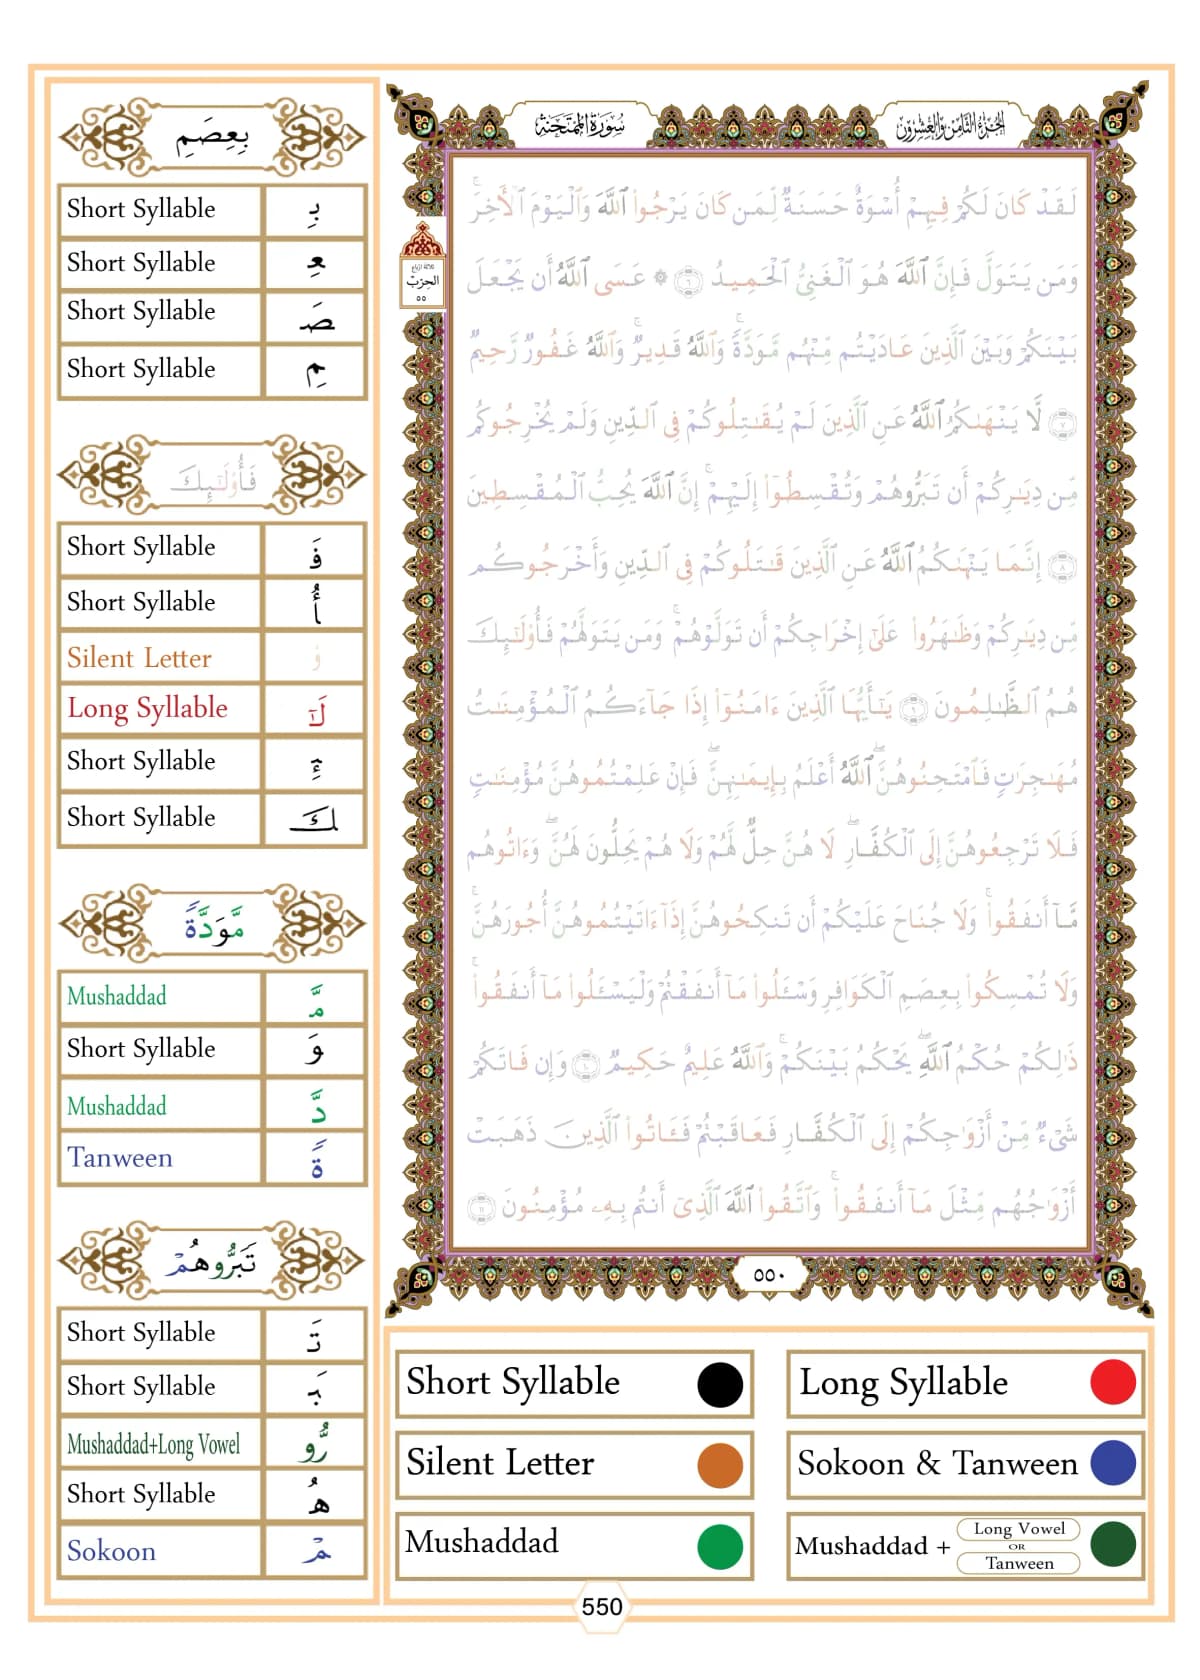 الجزء الثامن والعشرون
سورة الممتحنة
لَقَدْ كَانَ لَكُمْ فِيهِمْ أُسْوَةٌ حَسَنَةٌ لِّمَن كَانَ يَرْجُوا۟ ٱللَّهَ وَٱلْيَوْمَ ٱلْـَٔاخِرَ ۚ
وَمَن يَتَوَلَّ فَإِنَّ ٱللَّهَ هُوَ ٱلْغَنِىُّ ٱلْحَمِيدُ ٦ ۞ عَسَى ٱللَّهُ أَن يَجْعَلَ
بَيْنَكُمْ وَبَيْنَ ٱلَّذِينَ عَادَيْتُم مِّنْهُم مَّوَدَّةً ۚ وَٱللَّهُ قَدِيرٌ ۚ وَٱللَّهُ غَفُورٌ رَّحِيمٌ
٧ لَّا يَنْهَىٰكُمُ ٱللَّهُ عَنِ ٱلَّذِينَ لَمْ يُقَٰتِلُوكُمْ فِى ٱلدِّينِ وَلَمْ يُخْرِجُوكُم
مِّن دِيَٰرِكُمْ أَن تَبَرُّوهُمْ وَتُقْسِطُوٓا۟ إِلَيْهِمْ ۚ إِنَّ ٱللَّهَ يُحِبُّ ٱلْمُقْسِطِينَ
٨ إِنَّمَا يَنْهَىٰكُمُ ٱللَّهُ عَنِ ٱلَّذِينَ قَٰتَلُوكُمْ فِى ٱلدِّينِ وَأَخْرَجُوكُم
مِّن دِيَٰرِكُمْ وَظَٰهَرُوا۟ عَلَىٰٓ إِخْرَاجِكُمْ أَن تَوَلَّوْهُمْ ۚ وَمَن يَتَوَلَّهُمْ فَأُو۟لَٰٓئِكَ
هُمُ ٱلظَّٰلِمُونَ ٩ يَٰٓأَيُّهَا ٱلَّذِينَ ءَامَنُوٓا۟ إِذَا جَآءَكُمُ ٱلْمُؤْمِنَٰتُ
مُهَٰجِرَٰتٍ فَٱمْتَحِنُوهُنَّ ۖ ٱللَّهُ أَعْلَمُ بِإِيمَٰنِهِنَّ ۖ فَإِنْ عَلِمْتُمُوهُنَّ مُؤْمِنَٰتٍ
فَلَا تَرْجِعُوهُنَّ إِلَى ٱلْكُفَّارِ ۖ لَا هُنَّ حِلٌّ لَّهُمْ وَلَا هُمْ يَحِلُّونَ لَهُنَّ ۖ وَءَاتُوهُم
مَّآ أَنفَقُوا۟ ۚ وَلَا جُنَاحَ عَلَيْكُمْ أَن تَنكِحُوهُنَّ إِذَآ ءَاتَيْتُمُوهُنَّ أُجُورَهُنَّ ۚ
وَلَا تُمْسِكُوا۟ بِعِصَمِ ٱلْكَوَافِرِ وَسْـَٔلُوا۟ مَآ أَنفَقْتُمْ وَلْيَسْـَٔلُوا۟ مَآ أَنفَقُوا۟ ۚ
ذَٰلِكُمْ حُكْمُ ٱللَّهِ ۖ يَحْكُمُ بَيْنَكُمْ ۚ وَٱللَّهُ عَلِيمٌ حَكِيمٌ ١٠ وَإِن فَاتَكُمْ
شَىْءٌ مِّنْ أَزْوَٰجِكُمْ إِلَى ٱلْكُفَّارِ فَعَاقَبْتُمْ فَـَٔاتُوا۟ ٱلَّذِينَ ذَهَبَتْ
أَزْوَٰجُهُم مِّثْلَ مَآ أَنفَقُوا۟ ۚ وَٱتَّقُوا۟ ٱللَّهَ ٱلَّذِىٓ أَنتُم بِهِۦ مُؤْمِنُونَ ١١
٥٥٠
ثلاثة أرباع
الحزب
٥٥
بِعِصَمِ
Short Syllable بِـ
Short Syllable ـعِـ
Short Syllable ـصَـ
Short Syllable ـمِ
فَأُو۟لَٰٓئِكَ
Short Syllable فَـ
Short Syllable أُ
Silent Letter و۟
Long Syllable لَٰٓـ
Short Syllable ئِـ
Short Syllable ـكَ
مَّوَدَّةً
Mushaddad مَّـ
Short Syllable وَ
Mushaddad دَّ
Tanween ةً
تَبَرُّوهُمْ
Short Syllable تَـ
Short Syllable ـبَـ
Mushaddad+Long Vowel ـرُّو
Short Syllable هُـ
Sokoon ـمْ
Short Syllable
Long Syllable
Silent Letter
Sokoon & Tanween
Mushaddad
Mushaddad +
Long Vowel
OR
Tanween
550